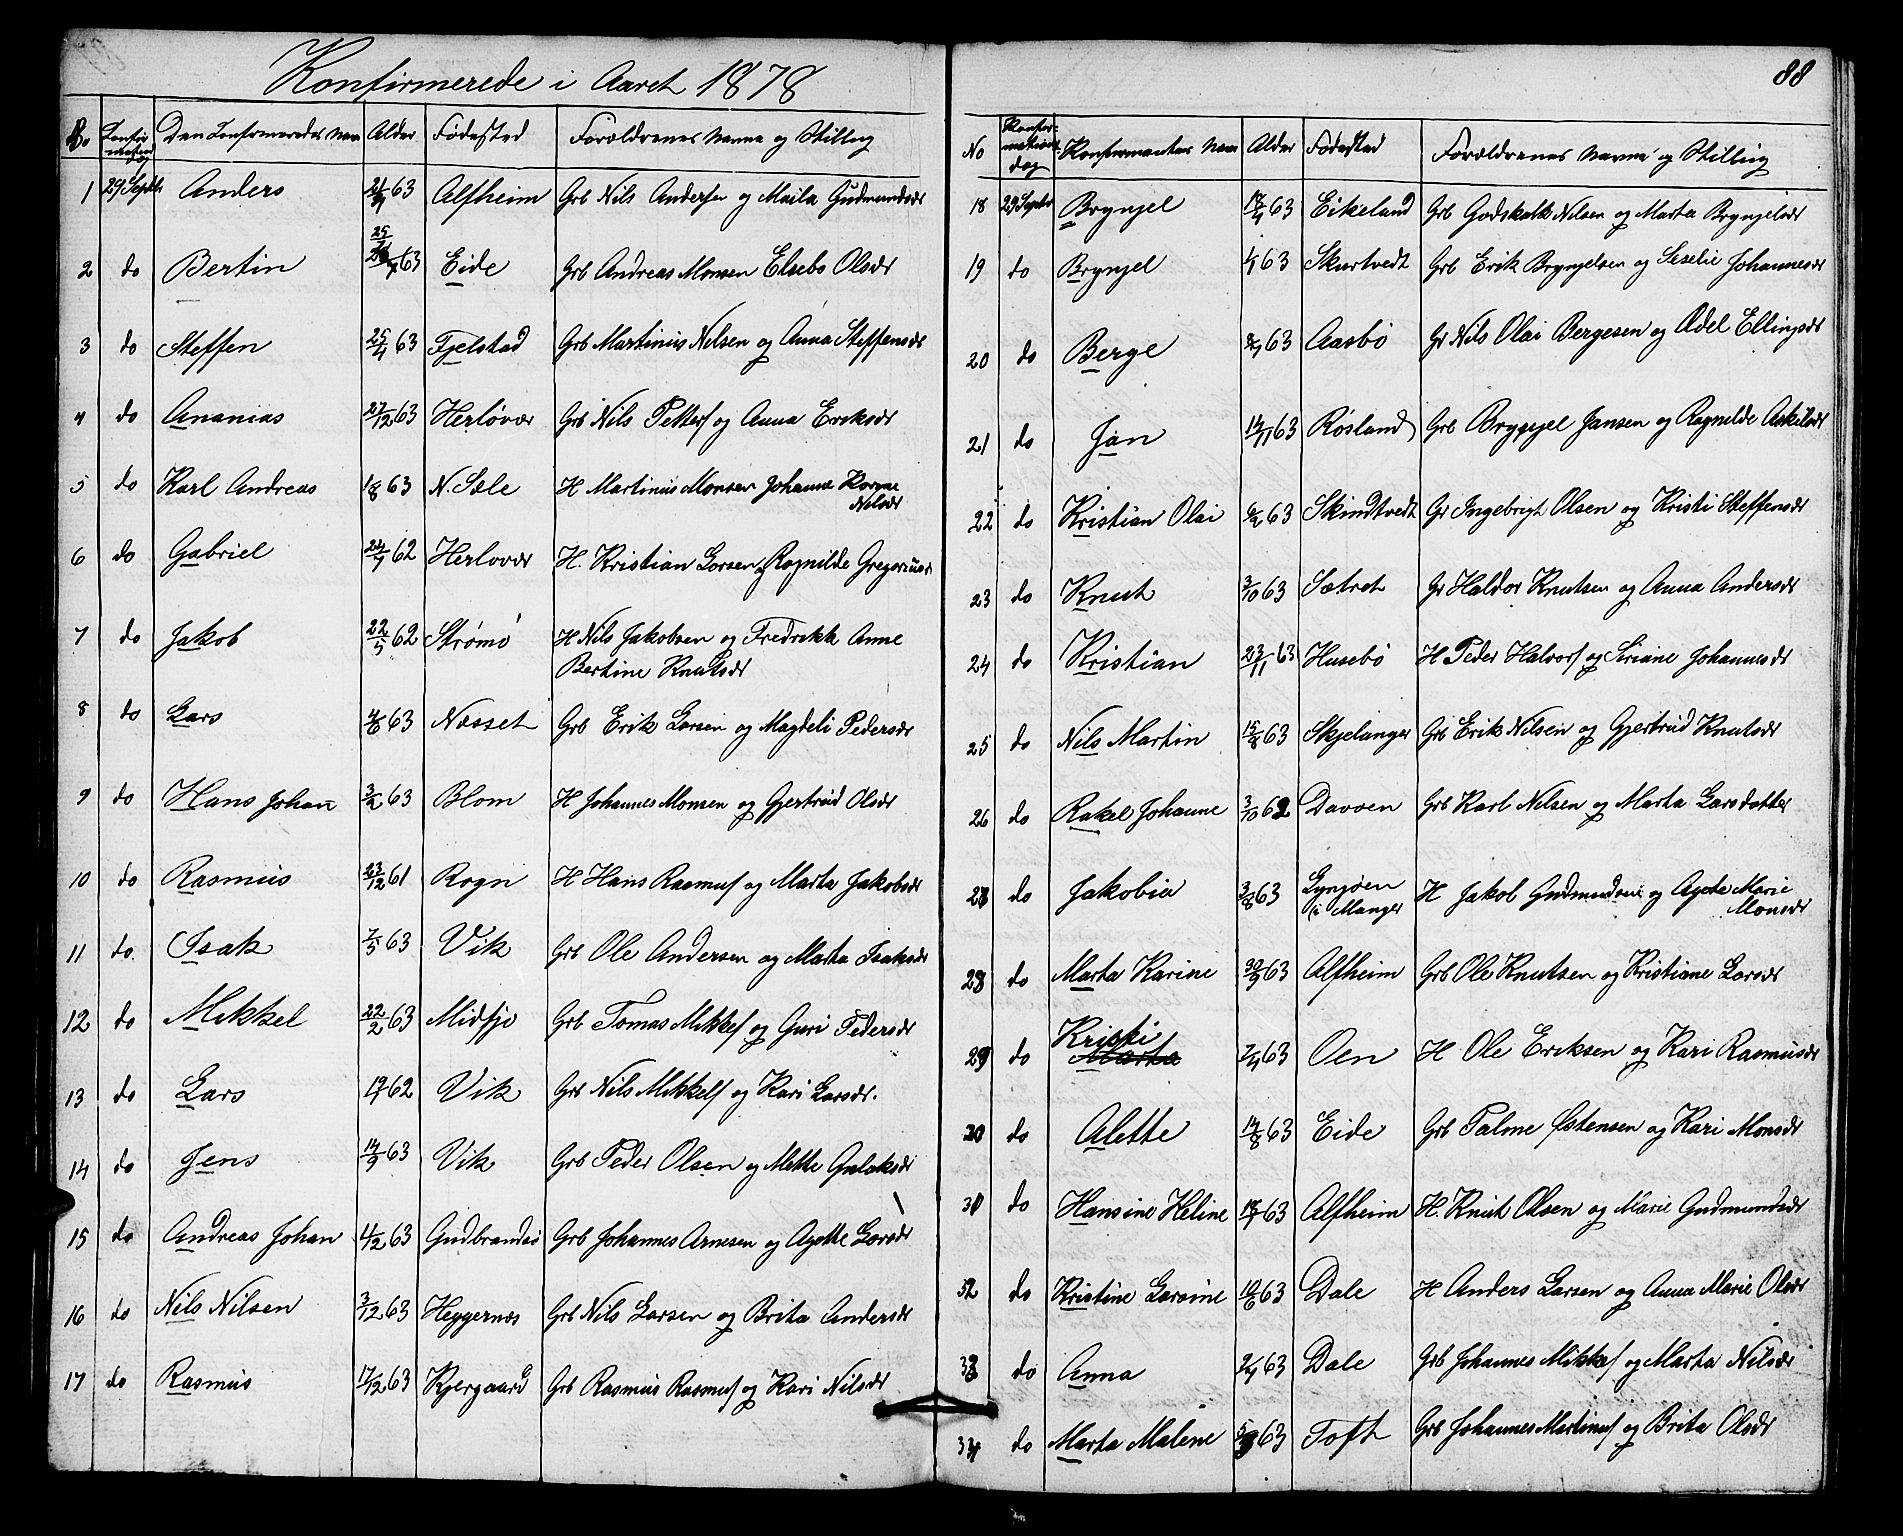 Konfirmerede i Aaret 1878
No Konfirmationsdag Den Konfirmeredes Navn Alder Fødested Forældrenes Navne og Stilling
1 29 Septbr Anders 63 Alfheim Grb Nils Andersen og Maila Gudmundsdr
2 do Bertin 63 Eide Grb Andreas Monsen Elsebe Olsdr
3 do Steffen 25/4 63 Fjelstad Grb Martinius Nilsen og Anna Steffensdr
4 do Ananias 27/12 63 Herløvær Grb Nils Petters og Anna Eriksdr
5 do Karl Andreas 1/8 63 N. Sæle H Martinus Monsen Johanne Korme
Nilsdr
6 do Gabriel 62 Herlovær H. Kristian Larsen og Ragnilde Gregoriusdr
7 do Jakob 22/5 62 Strømø H Nils Jakobsen og Fredrikk Anne
Bertine Knutsdr
8 do Lars 4/6 63 Næsset Grb Erik Larsen og Magdeli Pedersdr
9 do Hans Johan 3/2 63 Blom H Johannes Monsen og Gjertrud Olsdr
10 do Rasmus 23/12 61 Rogn H Hans Rasmus og Marta Jakobsdr
11 do. Isak 7/5 63 Vik Grb Ole Andersen og Marta Isaksdr
12 do Mikkel 22/2 63 Midtjo Grb Tomas Mikkels og Guri Pedersdr
13 do Lars 62 Vik Grb Nils Mikkels og Kari Larsdr.
14 do Jens 14/9 63 Vik Grb Peder Olsen og Mette Gulaksdr
15 do Andreas Johan 4/12 63 Gudbrandsø Grb Johannes Arnesen og Agathe Larsdr
16 do Nils Nilsen 3/12 63 Heggernæs Grb Nils Larsen og Brita Andersdr
17 do Rasmus 17/12 63 Kjergaard Grb Rasmus Rasmus og Kari Nilsdr
88
No Konfirmationsdag Konfirmantens Navn Alder Fødested Forældrenes Navne og Stilling
18 29 Septbr Brynjel 63 Eikeland Grb Godskalk Nilsen og Marta Brynjelsdr
19 do Brynjel 63 Skurtvedt Grb Erik Brynjelsen og Siselie Johannesdr
20 do Berge 63 Aasbø Gr Nils Olai Bergesen og Adel Ellingsdr
21 do Jan 14/11 63 Røsland Grb Brynjel Jansen og Ragnilde Askilsdr
22 do Kristian Olai 63 Skindtvedt Gr Ingebrigt Olsen og Kristi Steffensdr
23 do Knut 3/10 63 Sætret Gr Haldor Knutsen og Anna Andersdr
24 do Kristian 23/11 63 Husebø H Peder Halvors og Siriane Johannesdr
25 do Nils Martin 15/8 63 Skjelanger Grb Erik Nilsen og Gjertrud Knutsdr
26 do Rakel Johanne 3/10 62 Davøen Grb Karl Nilsen og Marta Larsdatter
27 do Jakobia 3/8 63 Lyngøen
i Manger H Jakob Gudmundsen og Agathe Marie
Monsdr
28 do Marta Karine 30/9 63 Alfheim Grb Ole Knutsen og Kristiane Larsdr
29 do Kristi
Marta 63 Oen H Ole Eriksen og Kari Rasmusdr
30 do Alette 14/8 63 Eide Grb Palme Østensen og Kari Monsdr
31 do Hansine Heline 63 Alfheim H. Knut Olsen og Marie Gudmundsdr
32 do Kristine Larsine 10/6 63 Dale H Anders Larsen og Anna Marie Olsdr
33 do Anna 63 Dale Grb Johannes Mikkels og Marta Nilsdr
34 do Marta Malene 63 Toft Grb Johannes Martinus og Brita Olsdr